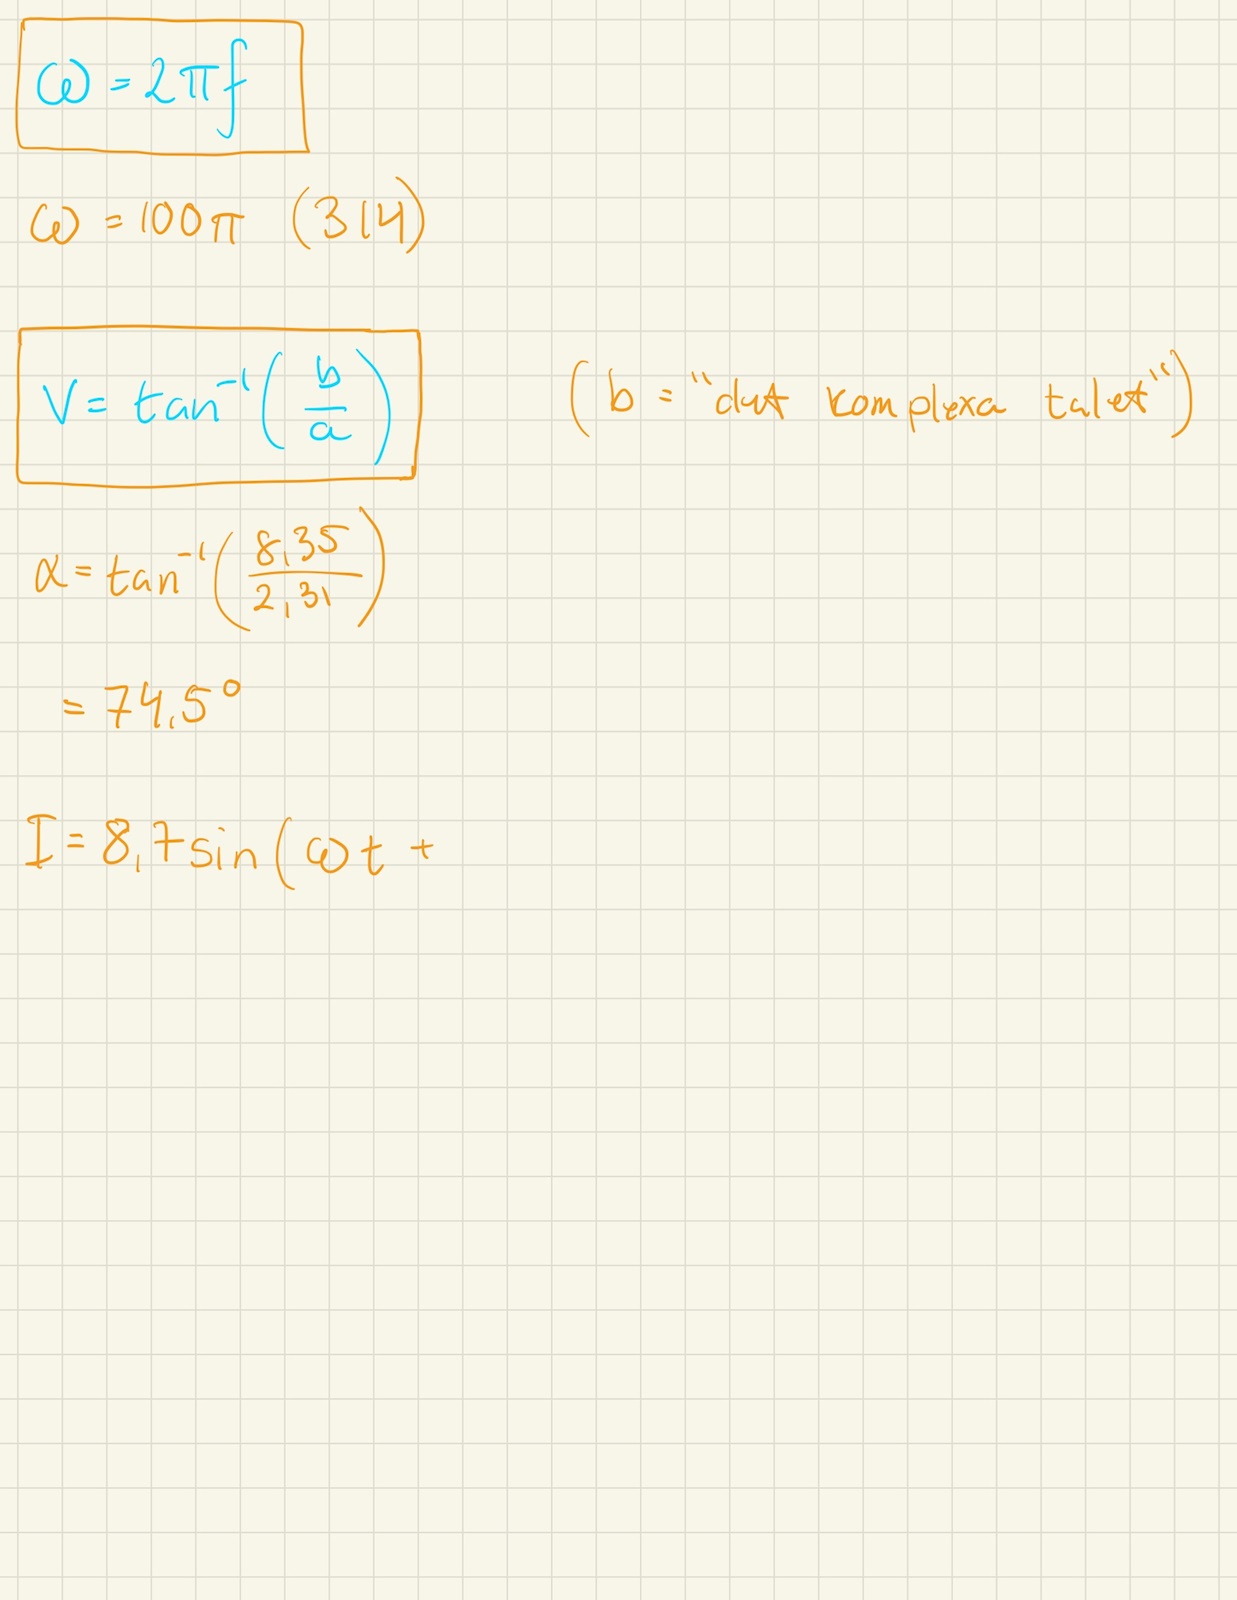 ω = 2πf
ω = 100π (314)
V = tan⁻¹(b/a) (b = "det komplexa talet")
α = tan⁻¹(8,35/2,31)
= 74,5°
I = 8,7 sin(ωt +